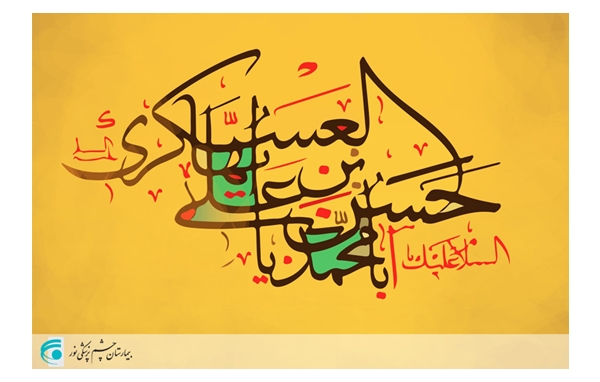 السلام علیک یا
ابا محمد یا
حسن بن علی
ایها
العسکری
بیمارستان چشم پزشکی نور